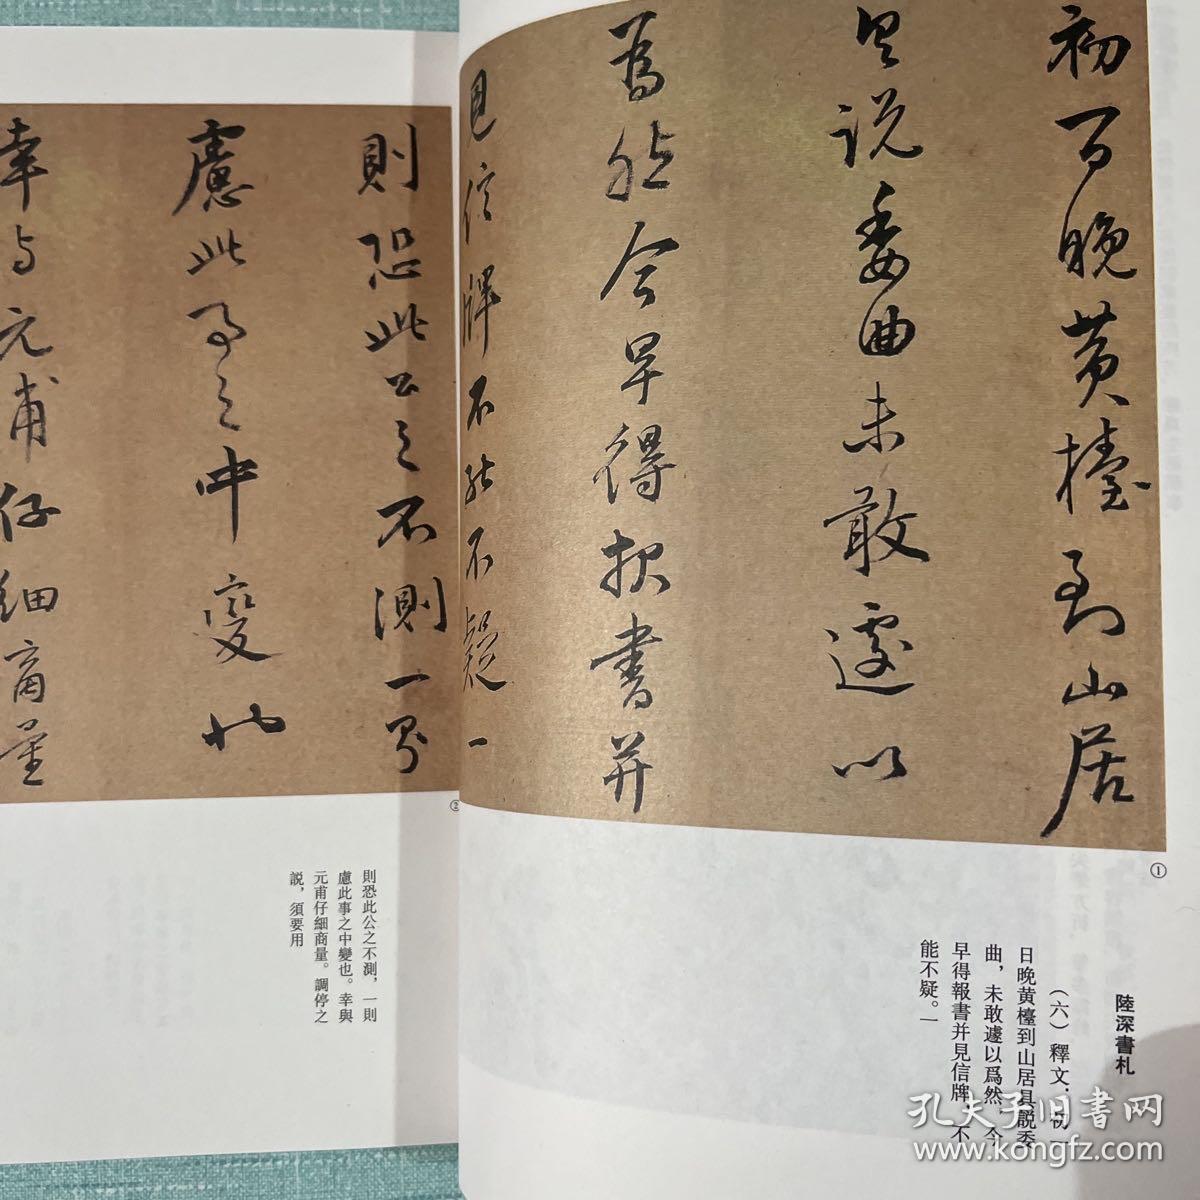 初一日晚黄檯到山居
具説委曲未敢遽以
爲然今早得報書并
見信牌不能不疑一
①
陸深書札
（六）釋文：初一
日晚黄檯到山居具説委
曲，未敢遽以爲然，今
早得報書并見信牌，不
能不疑。一
則恐此公之不測一則
慮此事之中變也
幸与元甫仔細商量
②
則恐此公之不測，一則
慮此事之中變也。幸與
元甫仔細商量。調停之
説，須要用
孔夫子旧書网
www.kongfz.com